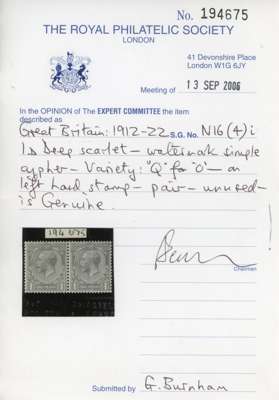 No. 194675
THE ROYAL PHILATELIC SOCIETY
LONDON
41 Devonshire Place
London W1G 6JY
Meeting of 13 SEP 2006
In the OPINION of The EXPERT COMMITTEE the item
described as
Great Britain: 1912-22 S.G. No. N16(4)i
1d Deep scarlet - watermark simple
cypher - Variety: "Q" for "O" - on
left hand stamp - pair - unused -
is Genuine.
194 675
Chairman
Submitted by G. Burnham